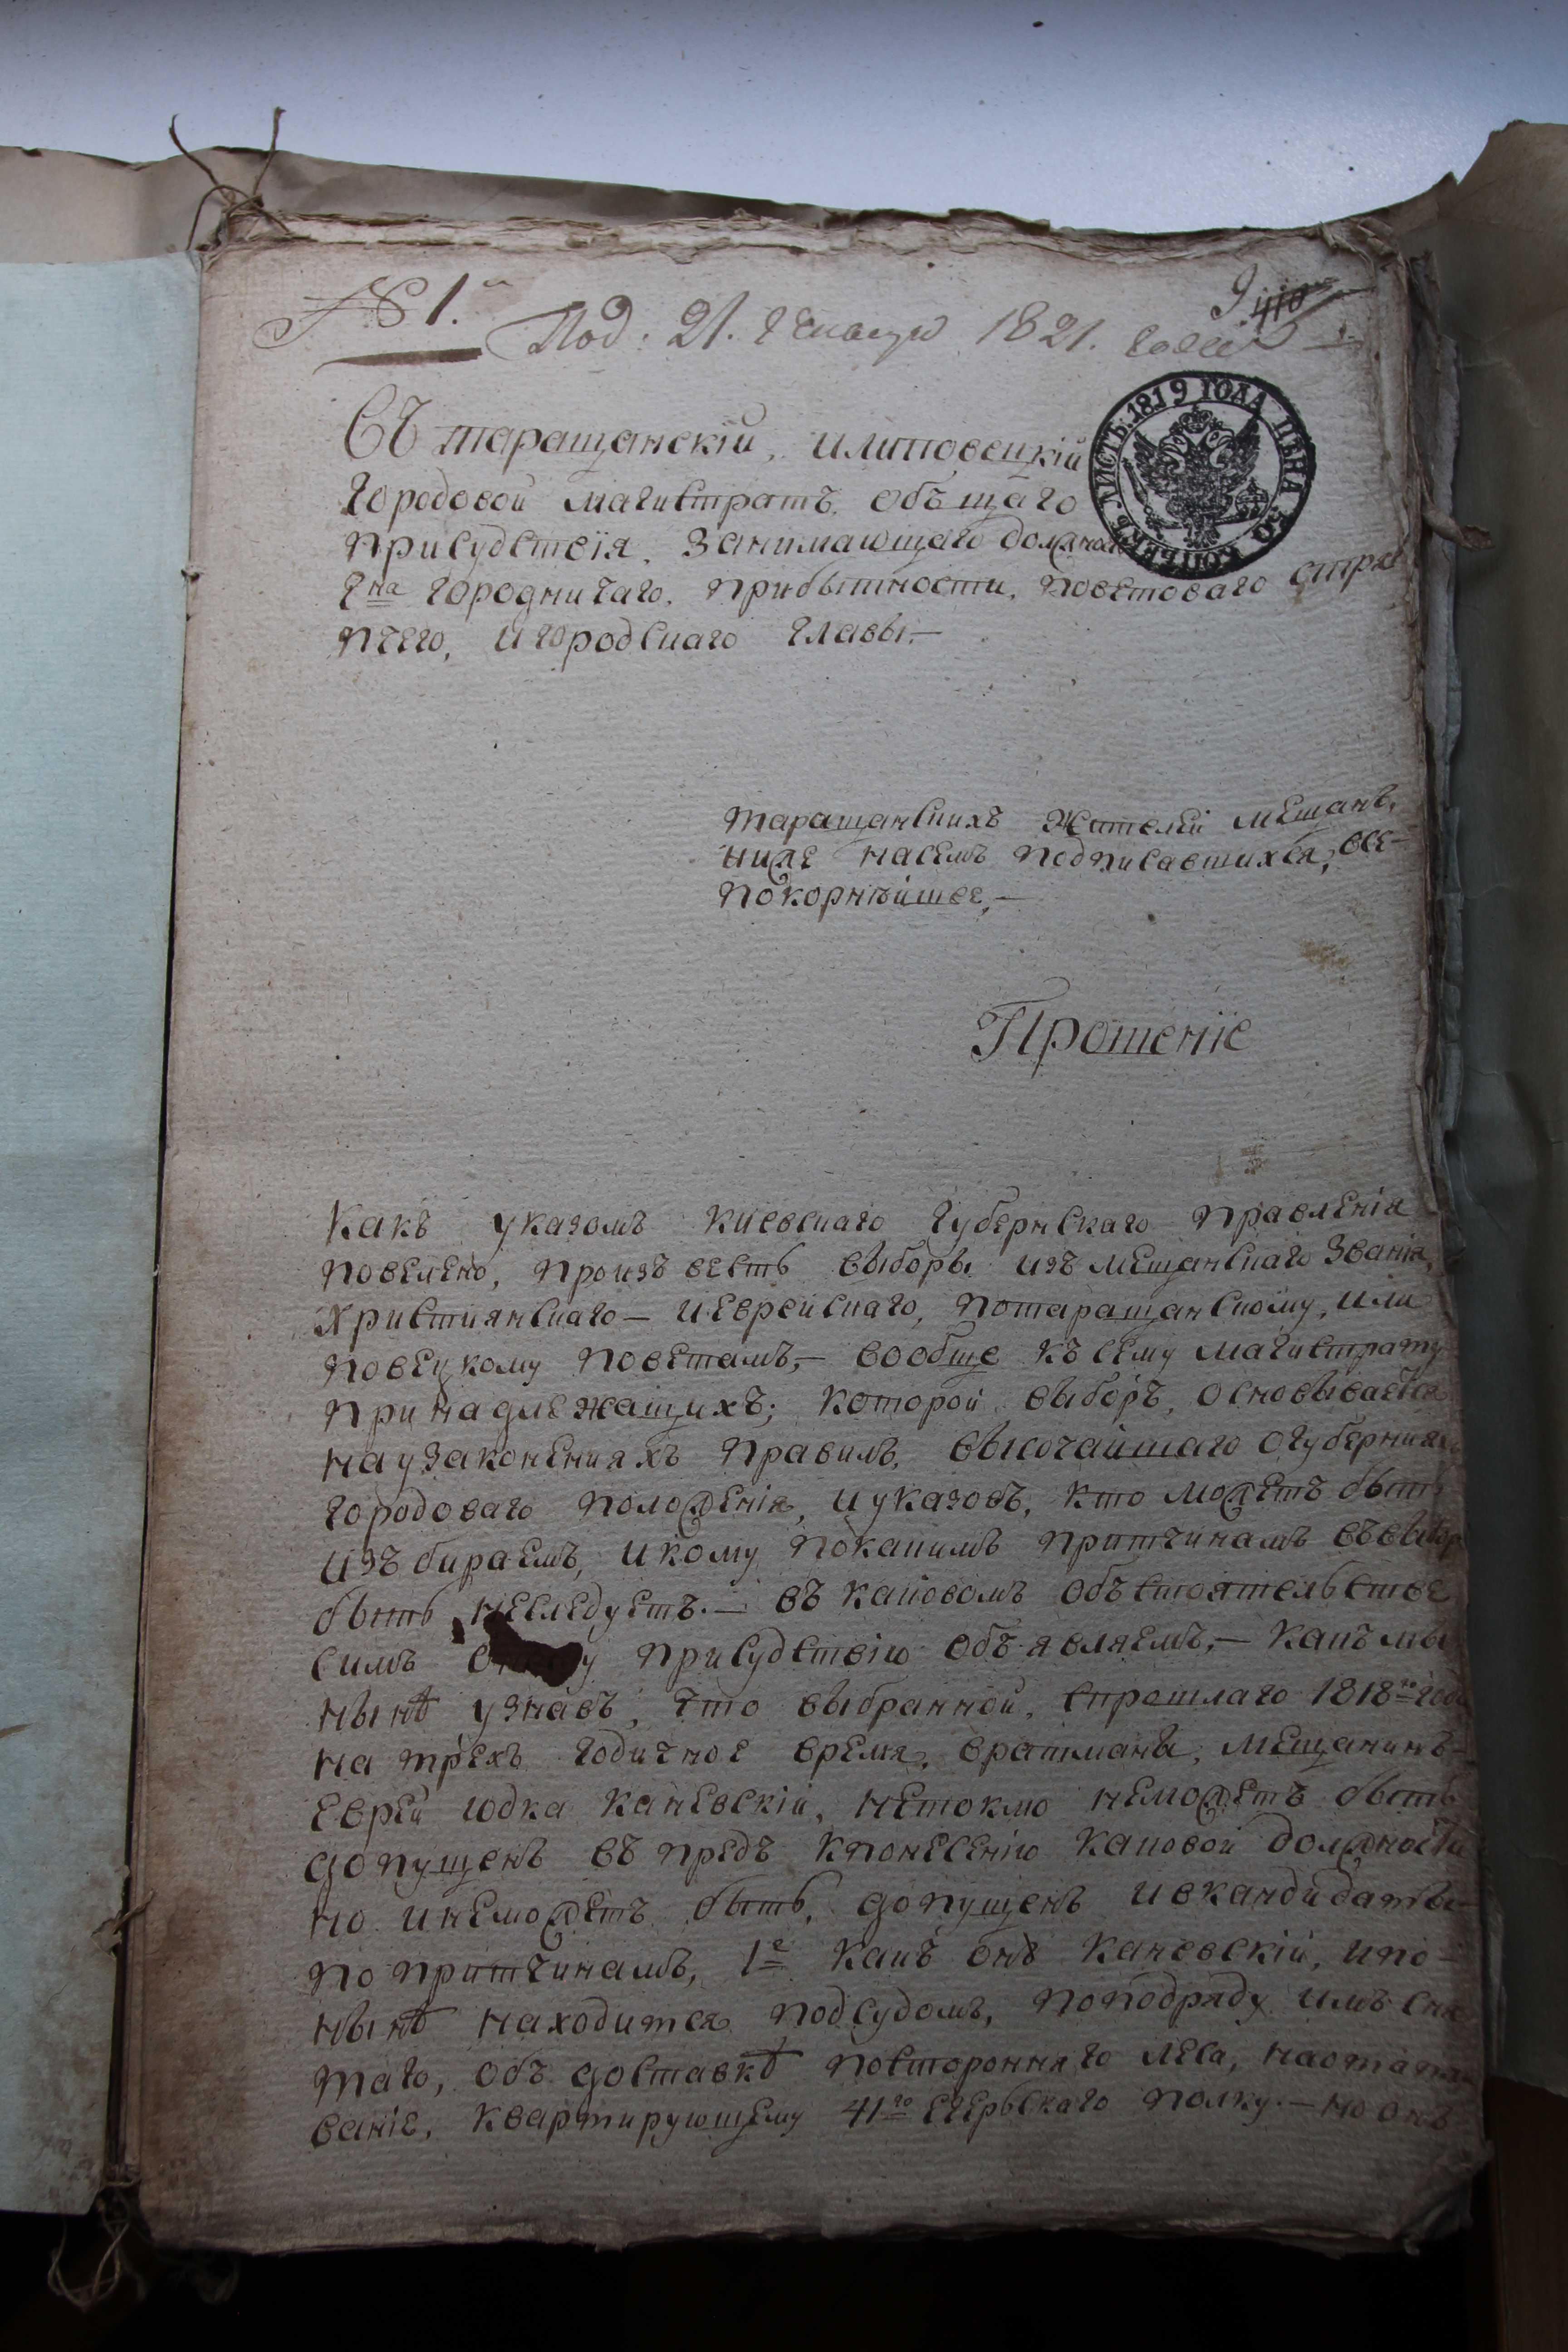 № 1.
Под: 21. Генваря 1821. года
ЛИСТЪ. 1819 ГОДА ЦѢНА 50 КОПѢЕКЪ
Съ таращанскій, илиповецкій
городовой магистратъ. объщаго
присудствія. занимающаго должнос
Г-на городничаго. прибытности. поветоваго стря
пчего, игородскаго главы.—
таращанскихъ жителей мещанъ,
ниже насемъ подписавшихся, все-
покорнѣйшее,—
Прошеніе
Какъ указомъ киевскаго губернскаго правленія
повелено, произъвесть выборы изъ мещанскаго званія,
християнскаго— иеврейскаго, потаращанскому, или
повецкому поветамъ,— вообще къ сему магистрату
принадлежащихъ; которой выборъ, основывается
наузаконенияхъ правилъ, высочайшаго огубернияхъ
городоваго положенія, иуказовъ, кто можетъ быть
изъбираемъ, икому покакимъ притчинамъ въвыбор
быть неследуетъ.— въ каковомъ объстоятельстве
симъ присудствію объявляемъ,— какъ мы
нынѣ узнавъ, что выбранной, спрошлаго 1818-го года
на трехъ годичное время, вратманы, мещанинъ-
еврей юдка каневскій, нетокмо неможетъ быть
допущенъ въ предъ кпонесенію каковой должности
но инеможетъ быть, допущенъ ивкандидаты—
по притчинамъ, 1-е какъ онъ каневскій, ипо-
нынѣ находится подсудомъ, поподряду имъ сня
таго, объ доставкѣ посторонняго леса, наотапли
ваніе, квартирующему 41-го егерьскаго полку.— но онъ